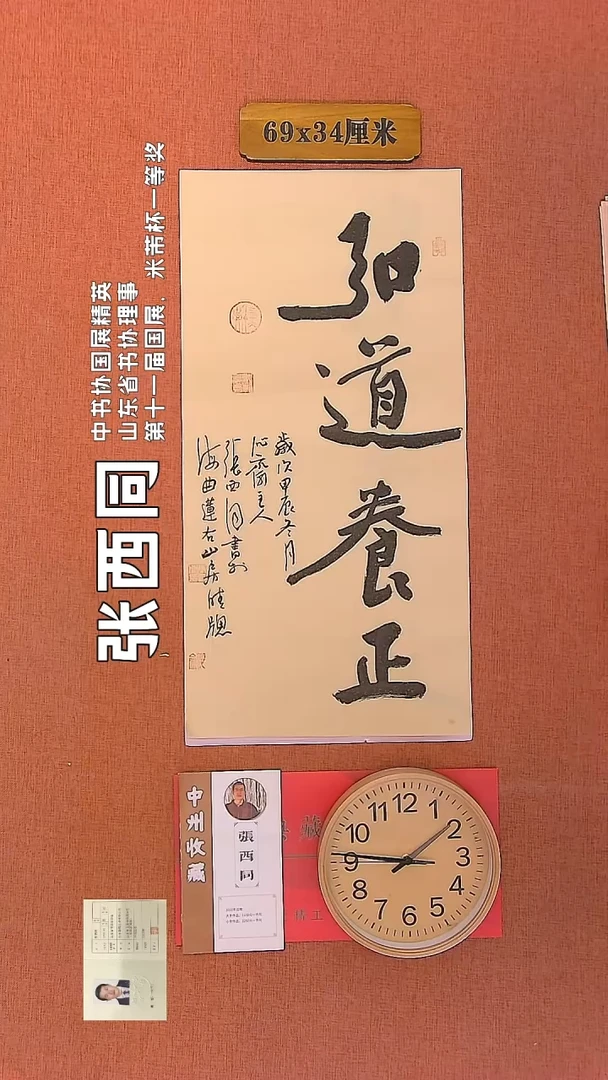 69x34厘米
弘道養正
歲次甲辰冬月
沁齋主人
張西同書於
海曲蓮右山房晴窗
中书协国展精英
山东省书协理事
第十一届国展、米芾杯一等奖
张西同
中书协
藏
張西同
12
1
2
3
4
5
6
7
8
9
10
11